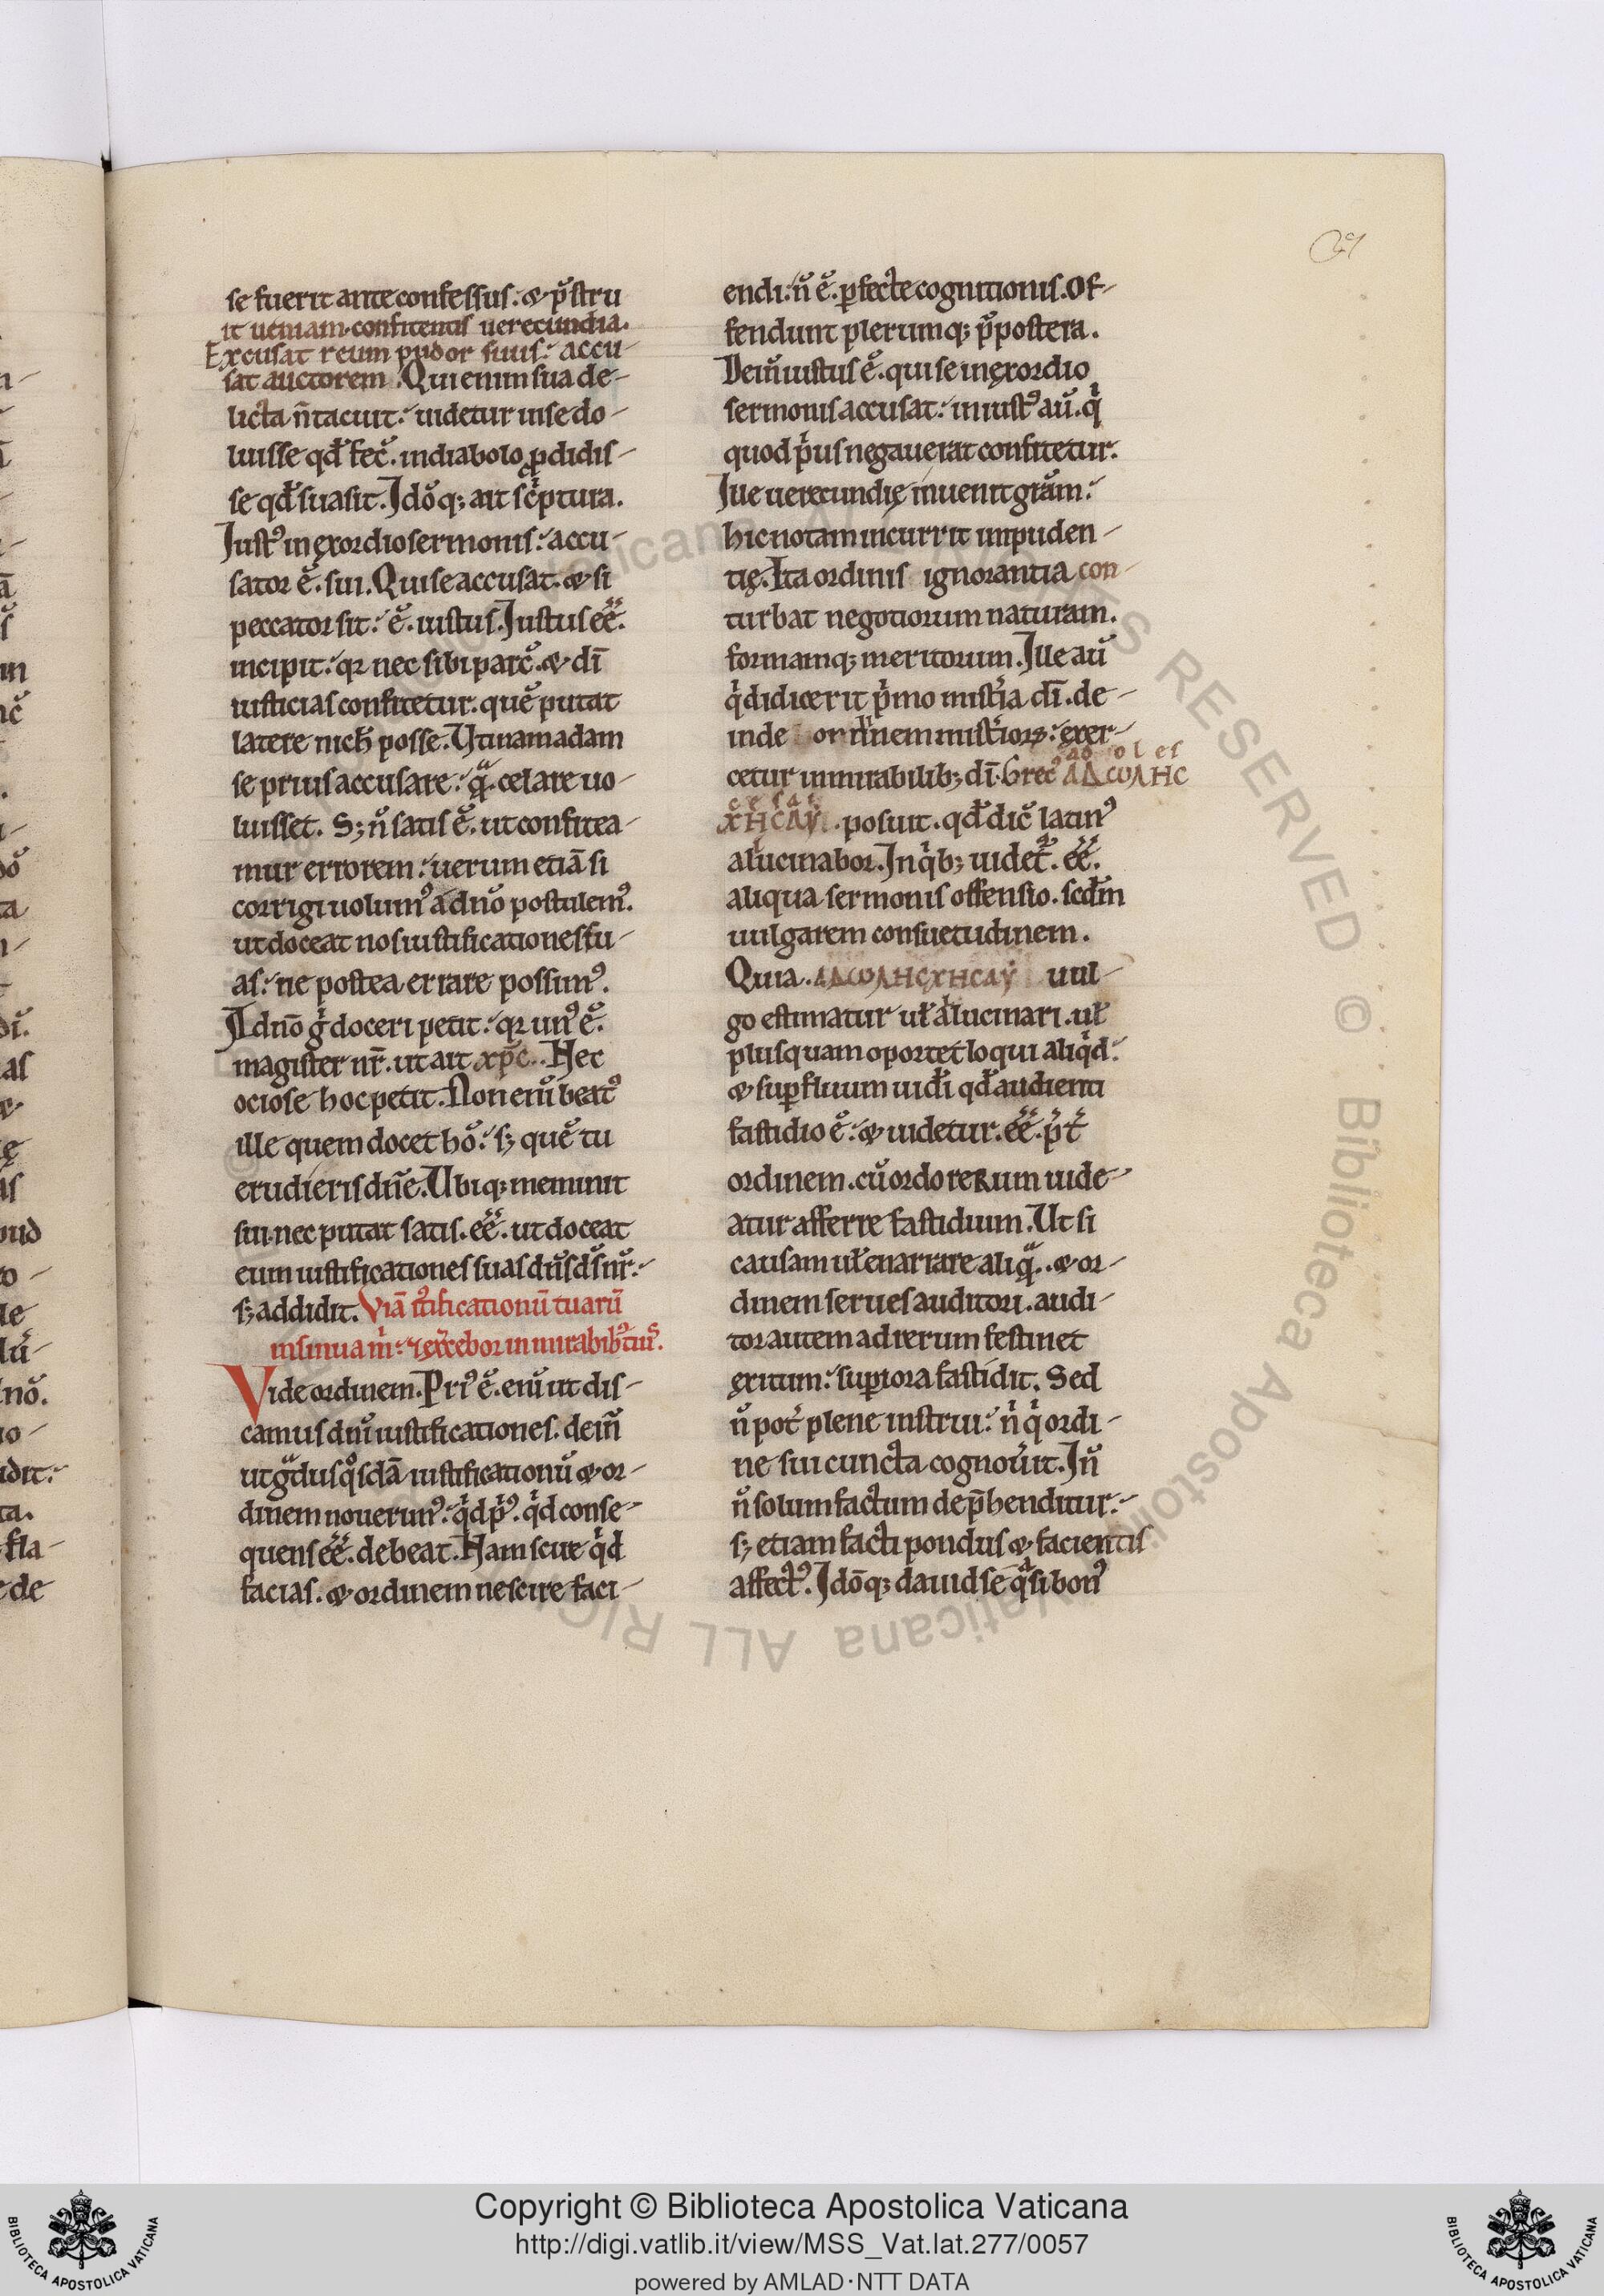 29
se fuerit ante confessus: & p̃stru
it ueniam confitentis uerecundia.
Excusat reum pudor suus: accu-
sat auctorem. Qui enim sua de-
licta ñ tacuit: uidetur in se do-
luisse qd̃ fec̃. in diabolo p̱didis-
se qd̃ suasit. Idõq; ait sc̃ptura.
Iust᾽ in ęxordio sermonis: accu-
sator ẽ. sui. Qui se accusat. & si
peccator sit: ẽ. iustus. Iustus eẽ.
incipit: qr nec sibi parc̃. & dī
iusticias confitetur. quẽ putat
latere nich̃ posse. Vtinam adam
se prius accusare: q̃. celare uo-
luisset. S; ñ satis ẽ. ut confitea-
mur errorem: uerum etiā si
corrigi uolum᾽ a dnõ postulem᾽.
ut doceat nos iustificationes su-
as: ne postea errare possim᾽.
A dnõ g̃ doceri petit: qr un᾽ ẽ.
magister nr̄. ut ait xp̄c. Nec
ociose hoc petit. Non enĩ beat᾽
ille quem docet hõ: s; quẽ tu
erudieris dñe. Ubiq; meminit
sui. nec putat satis. eẽ. ut doceat
eum iustificationes suas dñs ds̃ nr̃:
s; addidit. Viā iᵒtificationū tuarū
insinua m̃: ⁊ ęxcebor in mirabib᾽ tuis̃.
Vide ordinem. Pri᾽ ẽ. enĩ ut dis-
camus dñi iustificationes. deiñ
ut g̃dus q̊sdā iustificationũ & or-
dinem nouerim᾽: qᵈd p᾽. qᵈd conse-
quens eẽ. debeat. Nam scire qᵈd
facias. & ordinem nescire faci-
endi: ñ ẽ. p̱fecte cognitionis. Of-
fendunt plerumq; p̃postera.
Deiñ iustus ẽ. qui se in ęxordio
sermonis accusat: iniust᾽ aũ. qⁱ
quod pⁱus negauerat confitetur.
Ille uerecundię inuenit grãm:
hic notam incurrit impuden-
tię. Ita ordinis ignorantia con-
turbat negotiorum naturam.
formamq; meritorum. Ille aũ
qⁱ didicerit pⁱmo mist̃ia dī. de-
inde ordinem mist̃ioꝝ: ęxer-
ad o l es
cetur in mirabilib; dī. Grec᾽ ΑΔωΛΗC
c e s a i
χΗCΑΫ. posuit. qd̃ dic̃ latin᾽
alucinabor. In qⁱb; uidet̃. eẽ.
aliqua sermonis offensio. scd̃m
uulgarem consuetudinem.
Quia. ΑΔωΛΗCχΗCΑΫ uul-
go estimatur uł alucinari. uł
plusquam oportet loqui aliqⁱd:
& sup̱fluum uidr̃i qd̃ audienti
fastidio ẽ: & uidetur. eẽ. p̃t̃
ordinem. cũ ordo reRum uide-
atur afferre fastidium. Ut si
causam uł enarrare aliq̃. & or-
dinem serues auditori. audi-
tor autem ad rerum festinet
ęxitum: sup̱iora fastidit. Sed
ñ pot̃ plene instrui: nⁱ qⁱ ordi-
ne sui cuncta cognouĩt. Iñ
ñ solum factum dep̄henditur:
s; etiam facti pondus & facientis
affect᾽. Idõq; dauid se q̃si bon᾽
Copyright © Biblioteca Apostolica Vaticana
http://digi.vatlib.it/view/MSS_Vat.lat.277/0057
powered by AMLAD·NTT DATA
BIBLIOTECA APOSTOLICA VATICANA
BIBLIOTECA APOSTOLICA VATICANA